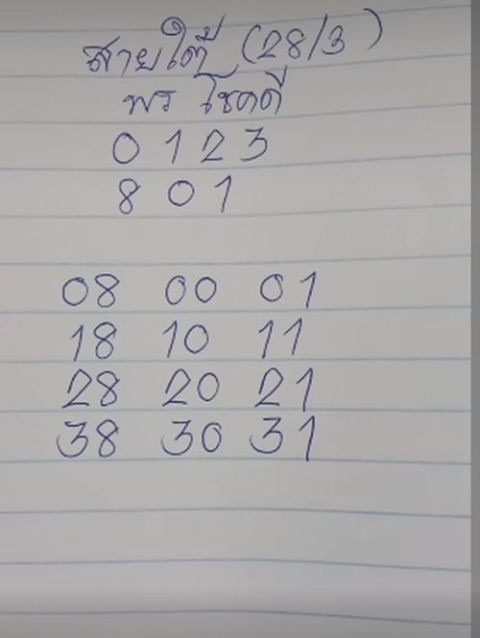 สายใต้ (28/3)
พร โชคดี
0 1 2 3
8 0 1
08 00 01
18 10 11
28 20 21
38 30 31